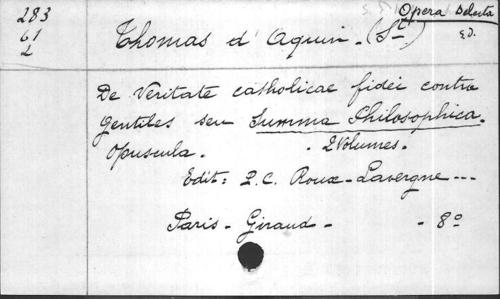 283
61
2
Opera Selecta
ED.
Thomas d'Aquin - (St)
De Veritate catholicae fidei contra
Gentiles seu Summa Philosophica.
Opuscula. - 2 Volumes.
Edit: P.C. Roux-Lavergne ---
Paris - Giraud - - 8º